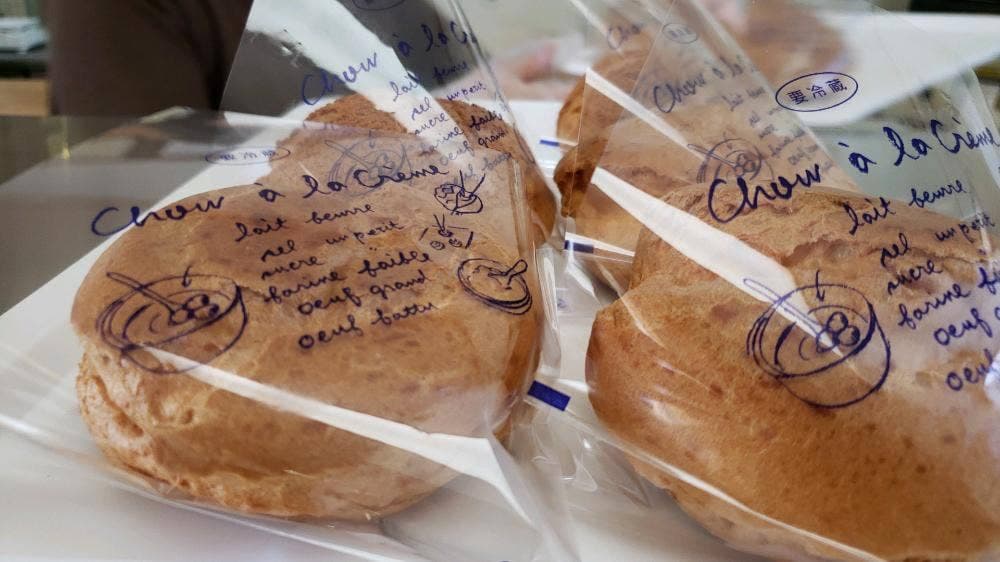 Chow à la Crème
lait beurre
sel un petit
sucre
farine faible
oeuf grand
oeuf battu
要冷蔵
Chow à la Crème
lait beurre
sel un petit
sucre
farine
oeuf
oeuf
Chow à la C
lait beurre
sel un petit
sucre
farine faible
oeuf grand
Chow à la